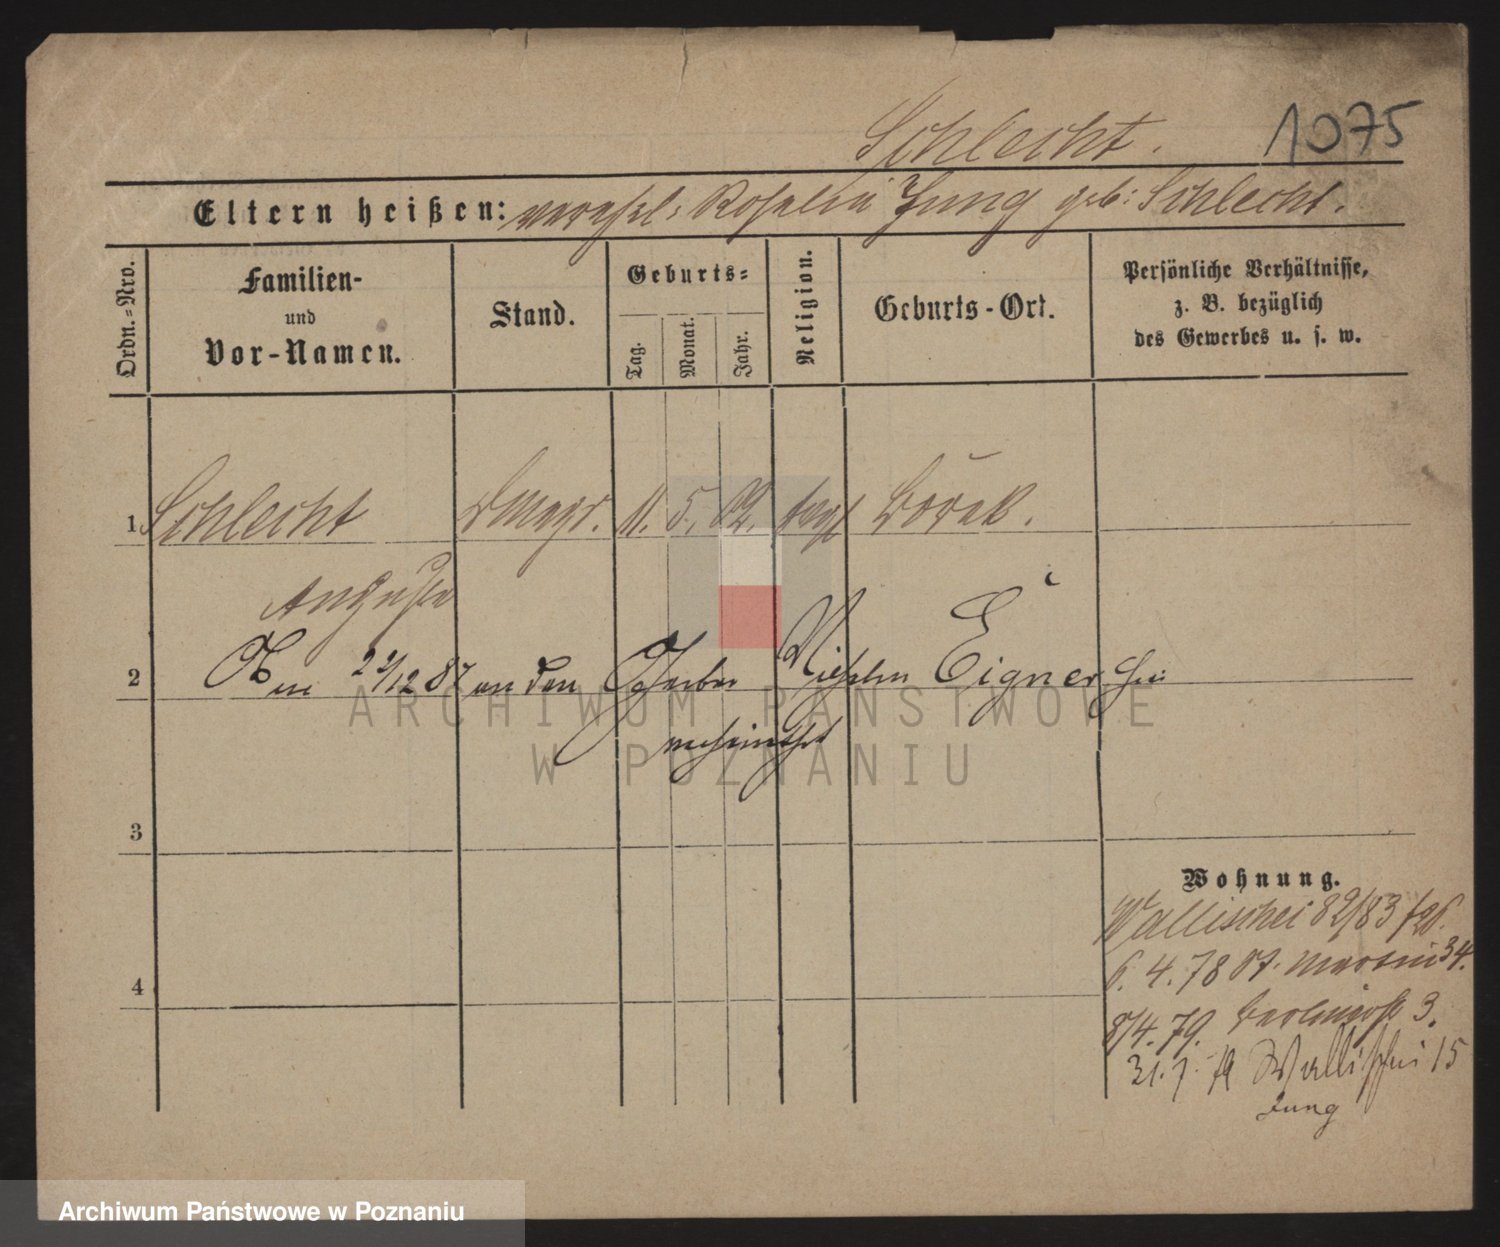 Schlecht.
1075
Eltern heißen: verehel: Rosalia Jung geb: Schlecht.
Ordn.=Nro.
Familien-
und
Vor-Namen.
Stand.
Geburts=
Tag.
Monat.
Jahr.
Religion.
Geburts-Ort.
Persönliche Verhältnisse,
z. B. bezüglich
des Gewerbes u. s. w.
1. Schlecht 11. 5. Borek.
Auguste
2 2/12 87 an den Gerber Wilhelm Eigner
verheirathet
3
Wohnung.
Wallischei 82/83
6. 4. 78 St. Martin 34.
4
8/4. 79. Berlinerstr 3.
31. 7. 79 Wallischei 15
Jung
ARCHIWUM PAŃSTWOWE
W POZNANIU
Archiwum Państwowe w Poznaniu